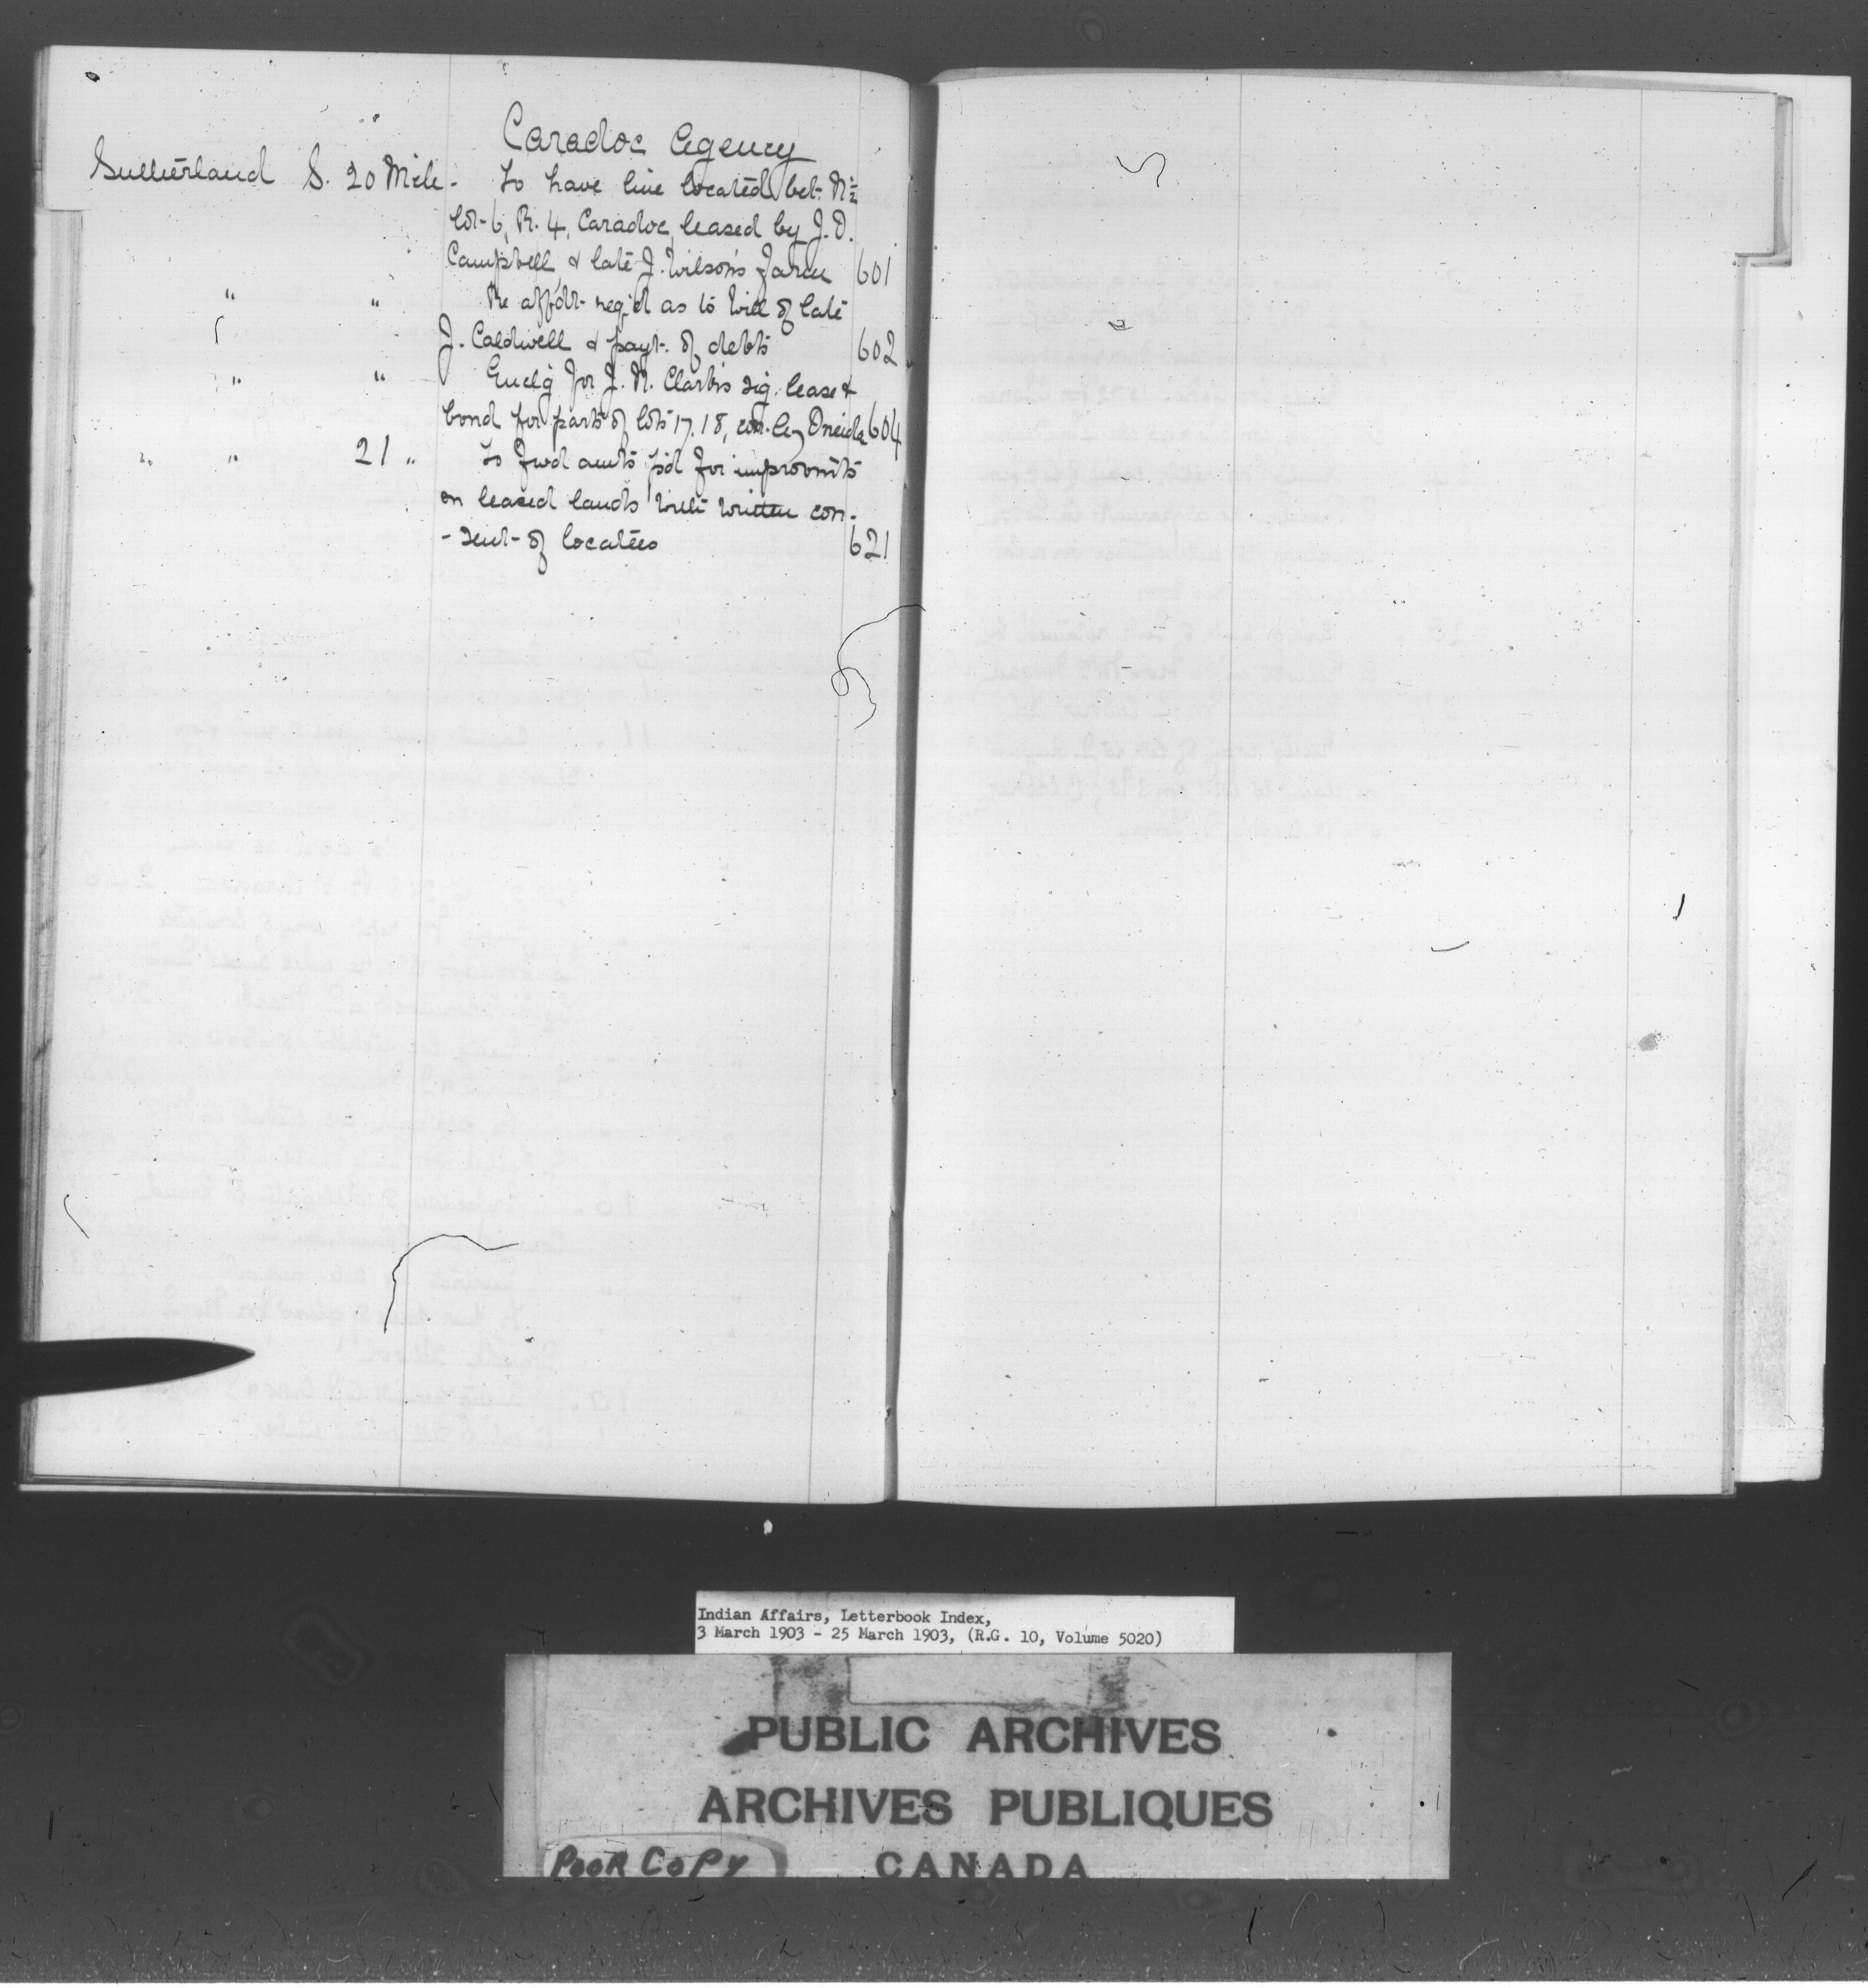 Caradoc Agency
Sutherland S. 20 Mch. To have line located bet. N½
lot 6, R. 4, Caradoc, leased by J. D.
Campbell, & late J. Wilson's farm 601
" " Re affdt. req'd as to Will of late
J. Caldwell & payt. of debts 602
" " Encl'g for J. N. Clark's sig. lease &
bond for parts of lots 17, 18, Oneida 604
" " 21 " To fwd amts p'd for improvm'ts
on leased lands with written con-
-sent of locatees 621
Indian Affairs, Letterbook Index,
3 March 1903 - 25 March 1903, (R.G. 10, Volume 5020)
PUBLIC ARCHIVES
ARCHIVES PUBLIQUES
CANADA
POOR COPY